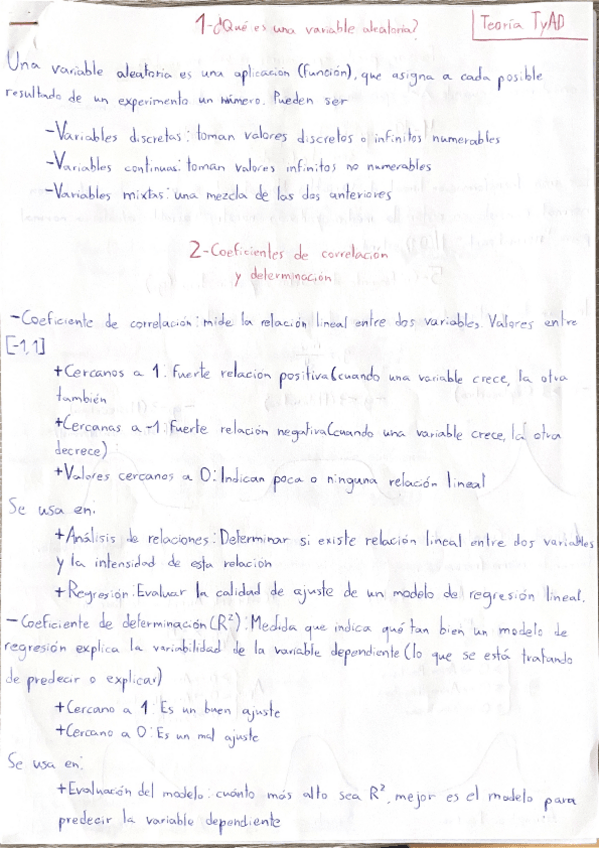 1-¿Qué es una variable aleatoria?
Teoría TyAD
Una variable aleatoria es una aplicación (función), que asigna a cada posible
resultado de un experimento un número. Pueden ser
-Variables discretas: toman valores discretos o infinitos numerables
-Variables continuas: toman valores infinitos no numerables
-Variables mixtas: una mezcla de las dos anteriores
2-Coeficientes de correlación
y determinación
-Coeficiente de correlación: mide la relación lineal entre dos variables. Valores entre
[-1,1]
+Cercanos a 1: Fuerte relación positiva (cuando una variable crece, la otra
también
+Cercanas a -1: Fuerte relación negativa (cuando una variable crece, la otra
decrece)
+Valores cercanos a 0: Indican poca o ninguna relación lineal
Se usa en:
+Análisis de relaciones: Determinar si existe relación lineal entre dos variables
y la intensidad de esta relación
+Regresión: Evaluar la calidad de ajuste de un modelo de regresión lineal.
-Coeficiente de determinación (R²): Medida que indica qué tan bien un modelo de
regresión explica la variabilidad de la variable dependiente (lo que se está tratando
de predecir o explicar)
+Cercano a 1: Es un buen ajuste
+Cercano a 0: Es un mal ajuste
Se usa en:
+Evaluación del modelo: cuánto más alto sea R², mejor es el modelo para
predecir la variable dependiente